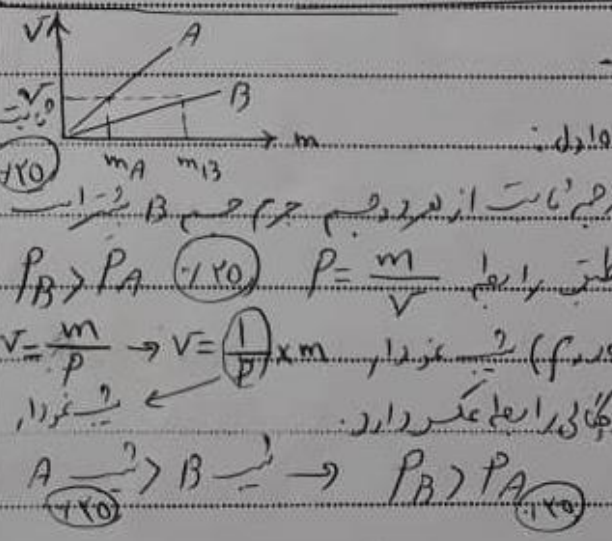 V
A
V
B
ثابت
m
m_A m_B
راه اول:
۰/۲۵
حجم ثابت از هر دو جسم جرم جسم B بیشتر است
P_B > P_A ۰/۲۵ P = m/V طبق رابطه
V = m/P → V = (1/P) × m شیب نمودار
شیب نمودار
چگالی رابطه عکس دارد.
شیب A > شیب B → P_B > P_A
۰/۲۵ ۰/۲۵